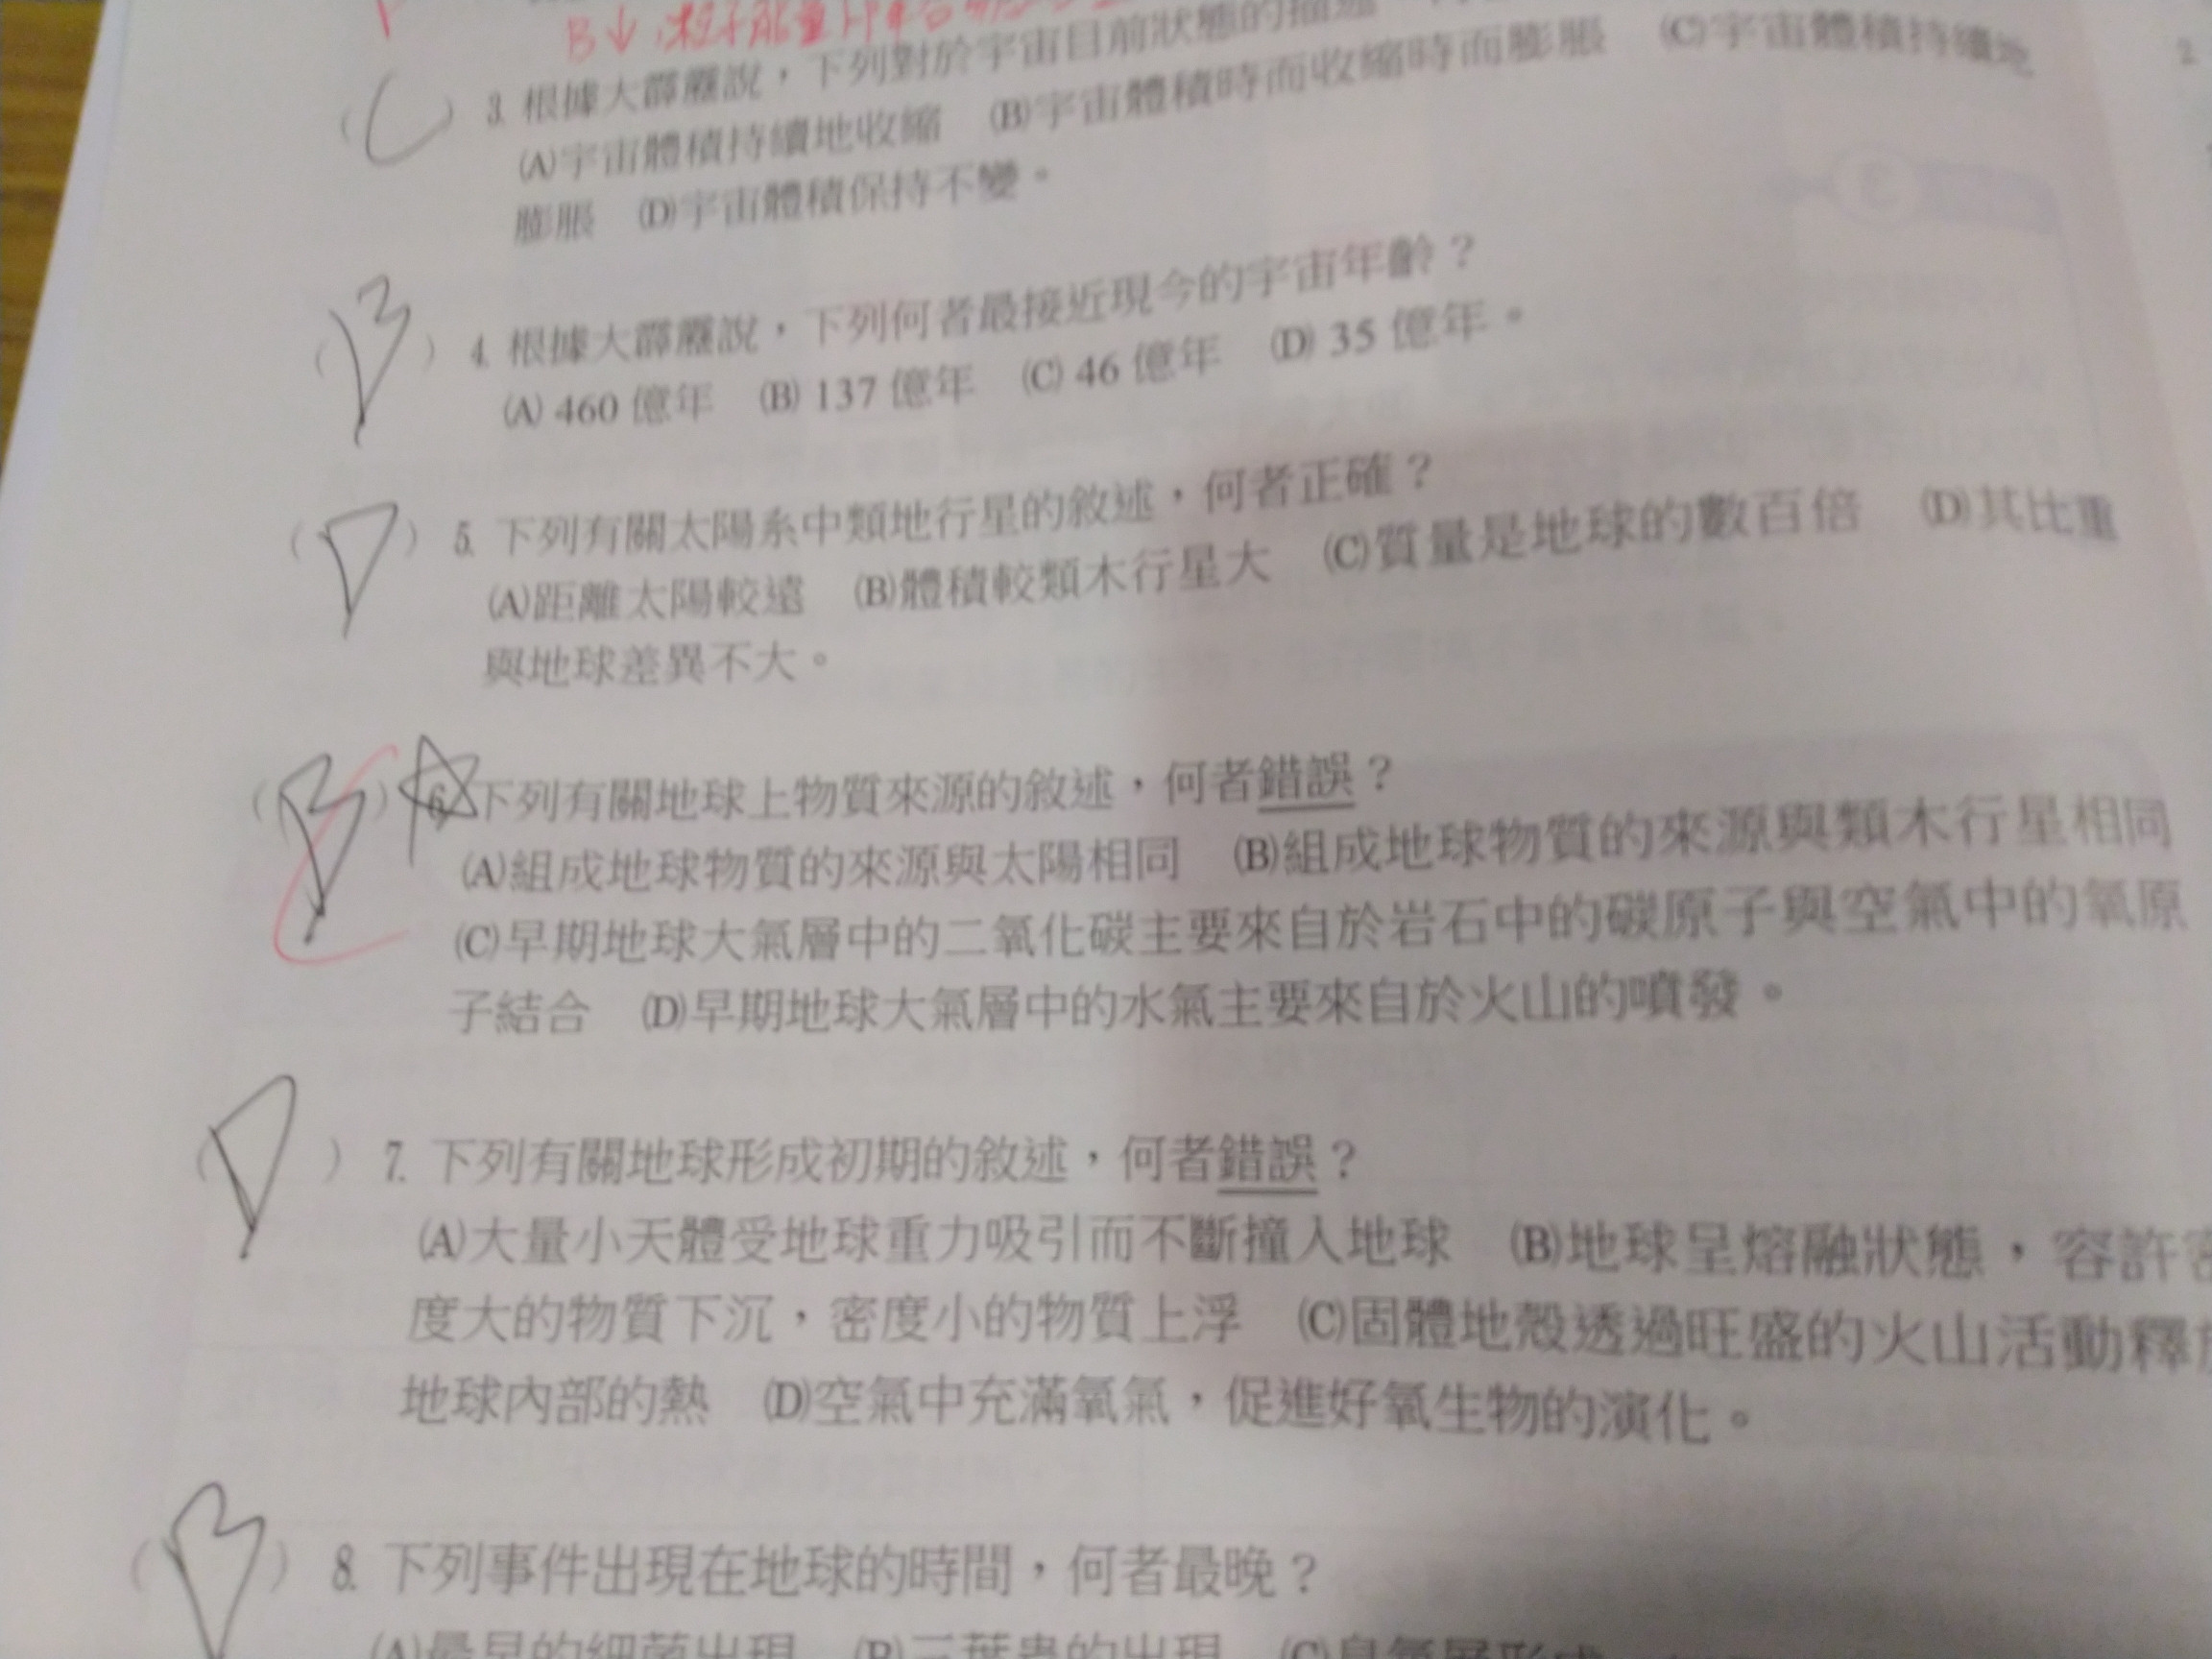 B↓
(C) 3. 根據大霹靂說，下列對於宇宙目前狀態的描述
(A)宇宙體積持續地收縮 (B)宇宙體積時而收縮時而膨脹 (C)宇宙體積持續地
膨脹 (D)宇宙體積保持不變。
(B) 4. 根據大霹靂說，下列何者最接近現今的宇宙年齡？
(A) 460 億年 (B) 137 億年 (C) 46 億年 (D) 35 億年。
(D) 5. 下列有關太陽系中類地行星的敘述，何者正確？
(A)距離太陽較遠 (B)體積較類木行星大 (C)質量是地球的數百倍 (D)其比重
與地球差異不大。
(B) C 6. 下列有關地球上物質來源的敘述，何者錯誤？
(A)組成地球物質的來源與太陽相同 (B)組成地球物質的來源與類木行星相同
(C)早期地球大氣層中的二氧化碳主要來自於岩石中的碳原子與空氣中的氧原
子結合 (D)早期地球大氣層中的水氣主要來自於火山的噴發。
(D) 7. 下列有關地球形成初期的敘述，何者錯誤？
(A)大量小天體受地球重力吸引而不斷撞入地球 (B)地球呈熔融狀態，容許密
度大的物質下沉，密度小的物質上浮 (C)固體地殼透過旺盛的火山活動釋放
地球內部的熱 (D)空氣中充滿氧氣，促進好氧生物的演化。
(B) 8. 下列事件出現在地球的時間，何者最晚？
(A)最早的細菌出現 (B)三葉蟲的出現 (C)臭氧層形成
2.